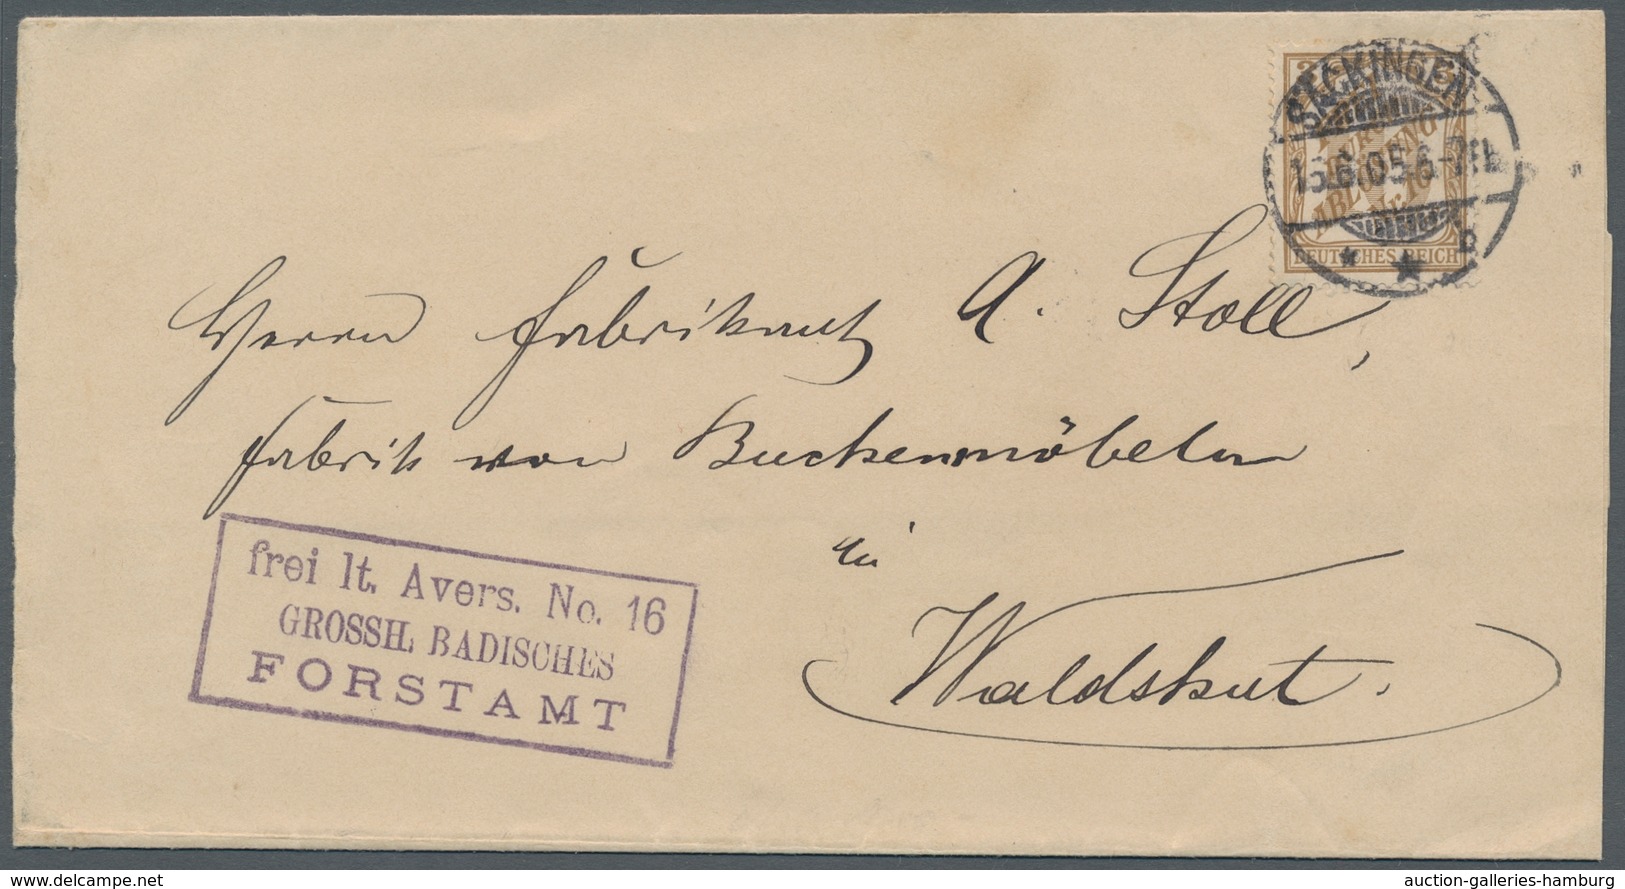 SÄCKINGEN
15.6.05.6-7N.
FREI DURCH
ABLÖSUNG
Nr. 16
DEUTSCHES REICH
Herrn Fabrikant A. Stoll,
Fabrik von Buckenmöbeln
in
Waldshut.
frei lt. Avers. No. 16
GROSSH. BADISCHES
FORSTAMT
www.delcampe.net
auction-galleries-hamburg